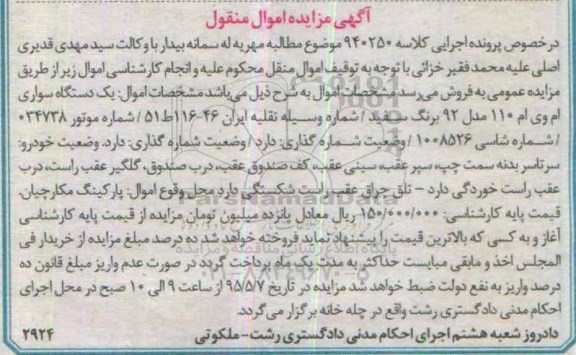 آگهی مزایده اموال منقول
در خصوص پرونده اجرایی کلاسه ۹۴۰۲۵۰ موضوع مطالبه مهریه له سمانه بیدار با وکالت سید مهدی قدیری
اصلی علیه محمد فقیر خزائی با توجه به توقیف اموال منقل محکوم علیه و انجام کارشناسی اموال زیر از طریق
مزایده عمومی به فروش می رسد مشخصات اموال به شرح ذیل می باشد مشخصات اموال: یک دستگاه سواری
ام وی ام ۱۱۰ مدل ۹۲ برنگ سفید / شماره وسیله نقلیه ایران ۴۶-۱۱۶ط۵۱ / شماره موتور ۰۳۴۷۳۸
/ شماره شاسی ۱۰۰۸۵۲۶ / وضعیت شماره گذاری: دارد / وضعیت شماره گذاری: دارد. وضعیت خودرو:
سرتاسر بدنه سمت چپ، سپر عقب، سینی عقب، کف صندوق عقب، درب صندوق، گلگیر عقب راست، درب
عقب راست خوردگی دارد - تلق چراق عقب راست شکستگی دارد محل وقوع اموال: پارکینگ مکارچیان.
قیمت پایه کارشناسی: ۱۵۰/۰۰۰/۰۰۰ ریال معادل پانزده میلیون تومان مزایده از قیمت پایه کارشناسی
آغاز و به کسی که بالاترین قیمت را پیشنهاد نماید فروخته خواهد شد ده درصد مبلغ مزایده از خریدار فی
المجلس اخذ و مابقی میبایست حداکثر به مدت یک ماه پرداخت گردد در صورت عدم واریز مبلغ قانون ده
درصد واریز به نفع دولت ضبط خواهد شد مزایده در تاریخ ۹۵/۵/۷ از ساعت ۹ الی ۱۰ صبح در محل اجرای
احکام مدنی دادگستری رشت واقع در چله خانه برگزار می گردد.
دادروز شعبه هشتم اجرای احکام مدنی دادگستری رشت - ملکوتی ۲۹۲۴